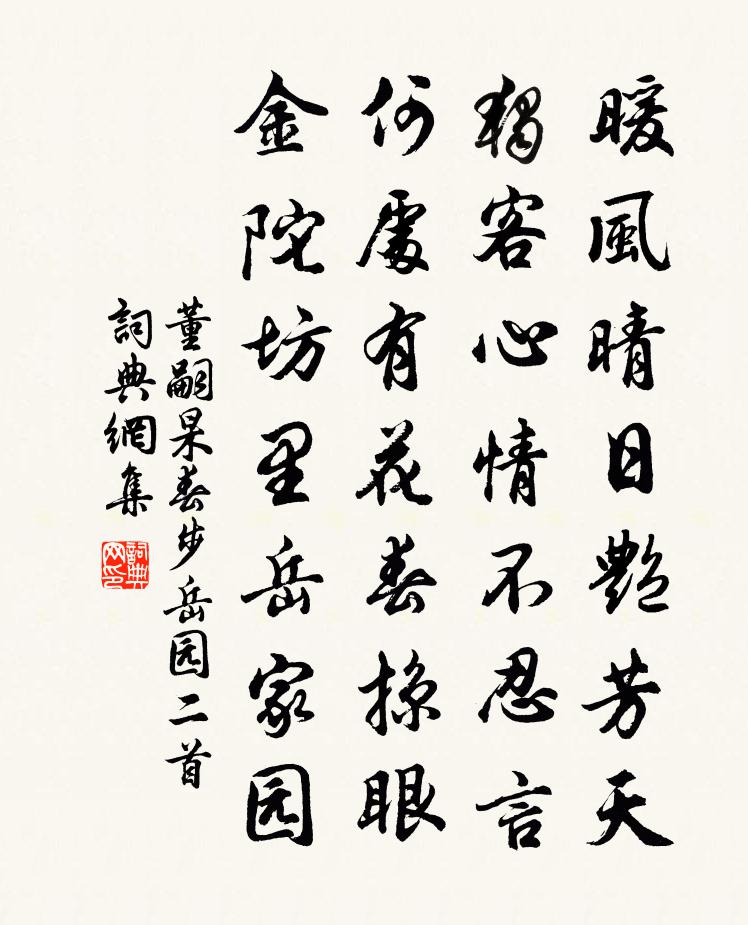 暖風晴日艷芳天
獨客心情不忍言
何處有花春掠眼
金陀坊里岳家园
董嗣杲春步岳园二首
詞典網集
詞典网印